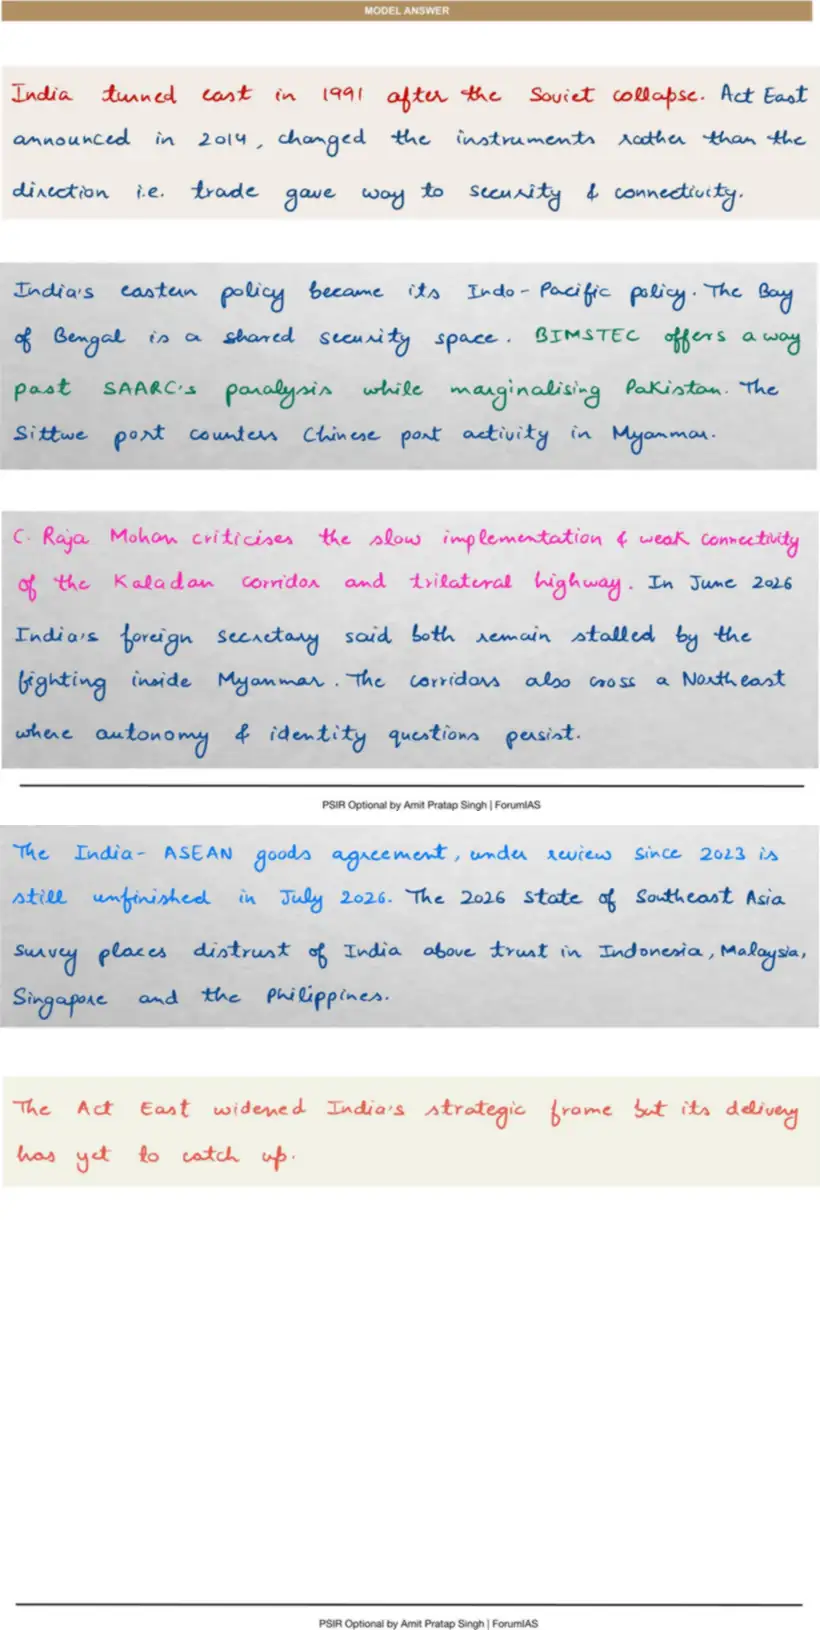 MODEL ANSWER
India turned east in 1991 after the Soviet collapse. Act East
announced in 2014, changed the instruments rather than the
direction i.e. trade gave way to security & connectivity.
India's eastern policy became its Indo-Pacific policy. The Bay
of Bengal is a shared security space. BIMSTEC offers a way
past SAARC's paralysis while marginalising Pakistan. The
Sittwe port counters Chinese port activity in Myanmar.
C. Raja Mohan criticises the slow implementation & weak connectivity
of the Kaladan corridor and trilateral highway. In June 2026
India's foreign secretary said both remain stalled by the
fighting inside Myanmar. The corridors also cross a Northeast
where autonomy & identity questions persist.
PSIR Optional by Amit Pratap Singh | ForumIAS
The India-ASEAN goods agreement, under review since 2023 is
still unfinished in July 2026. The 2026 State of Southeast Asia
Survey places distrust of India above trust in Indonesia, Malaysia,
Singapore and the Philippines.
The Act East widened India's strategic frame but its delivery
has yet to catch up.
PSIR Optional by Amit Pratap Singh | ForumIAS